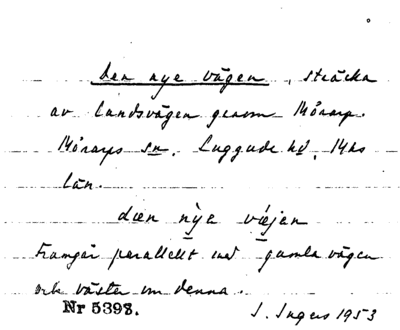 Den nye vägen, sträcka
av landsvägen genom Mörarp.
Mörarps sn, Luggude hd, Mhs
län.
dæn nỳe viejen
Framgår parallellt med gamla vägen
och väster om denna.
Nr 5398. I. Ingers 1953